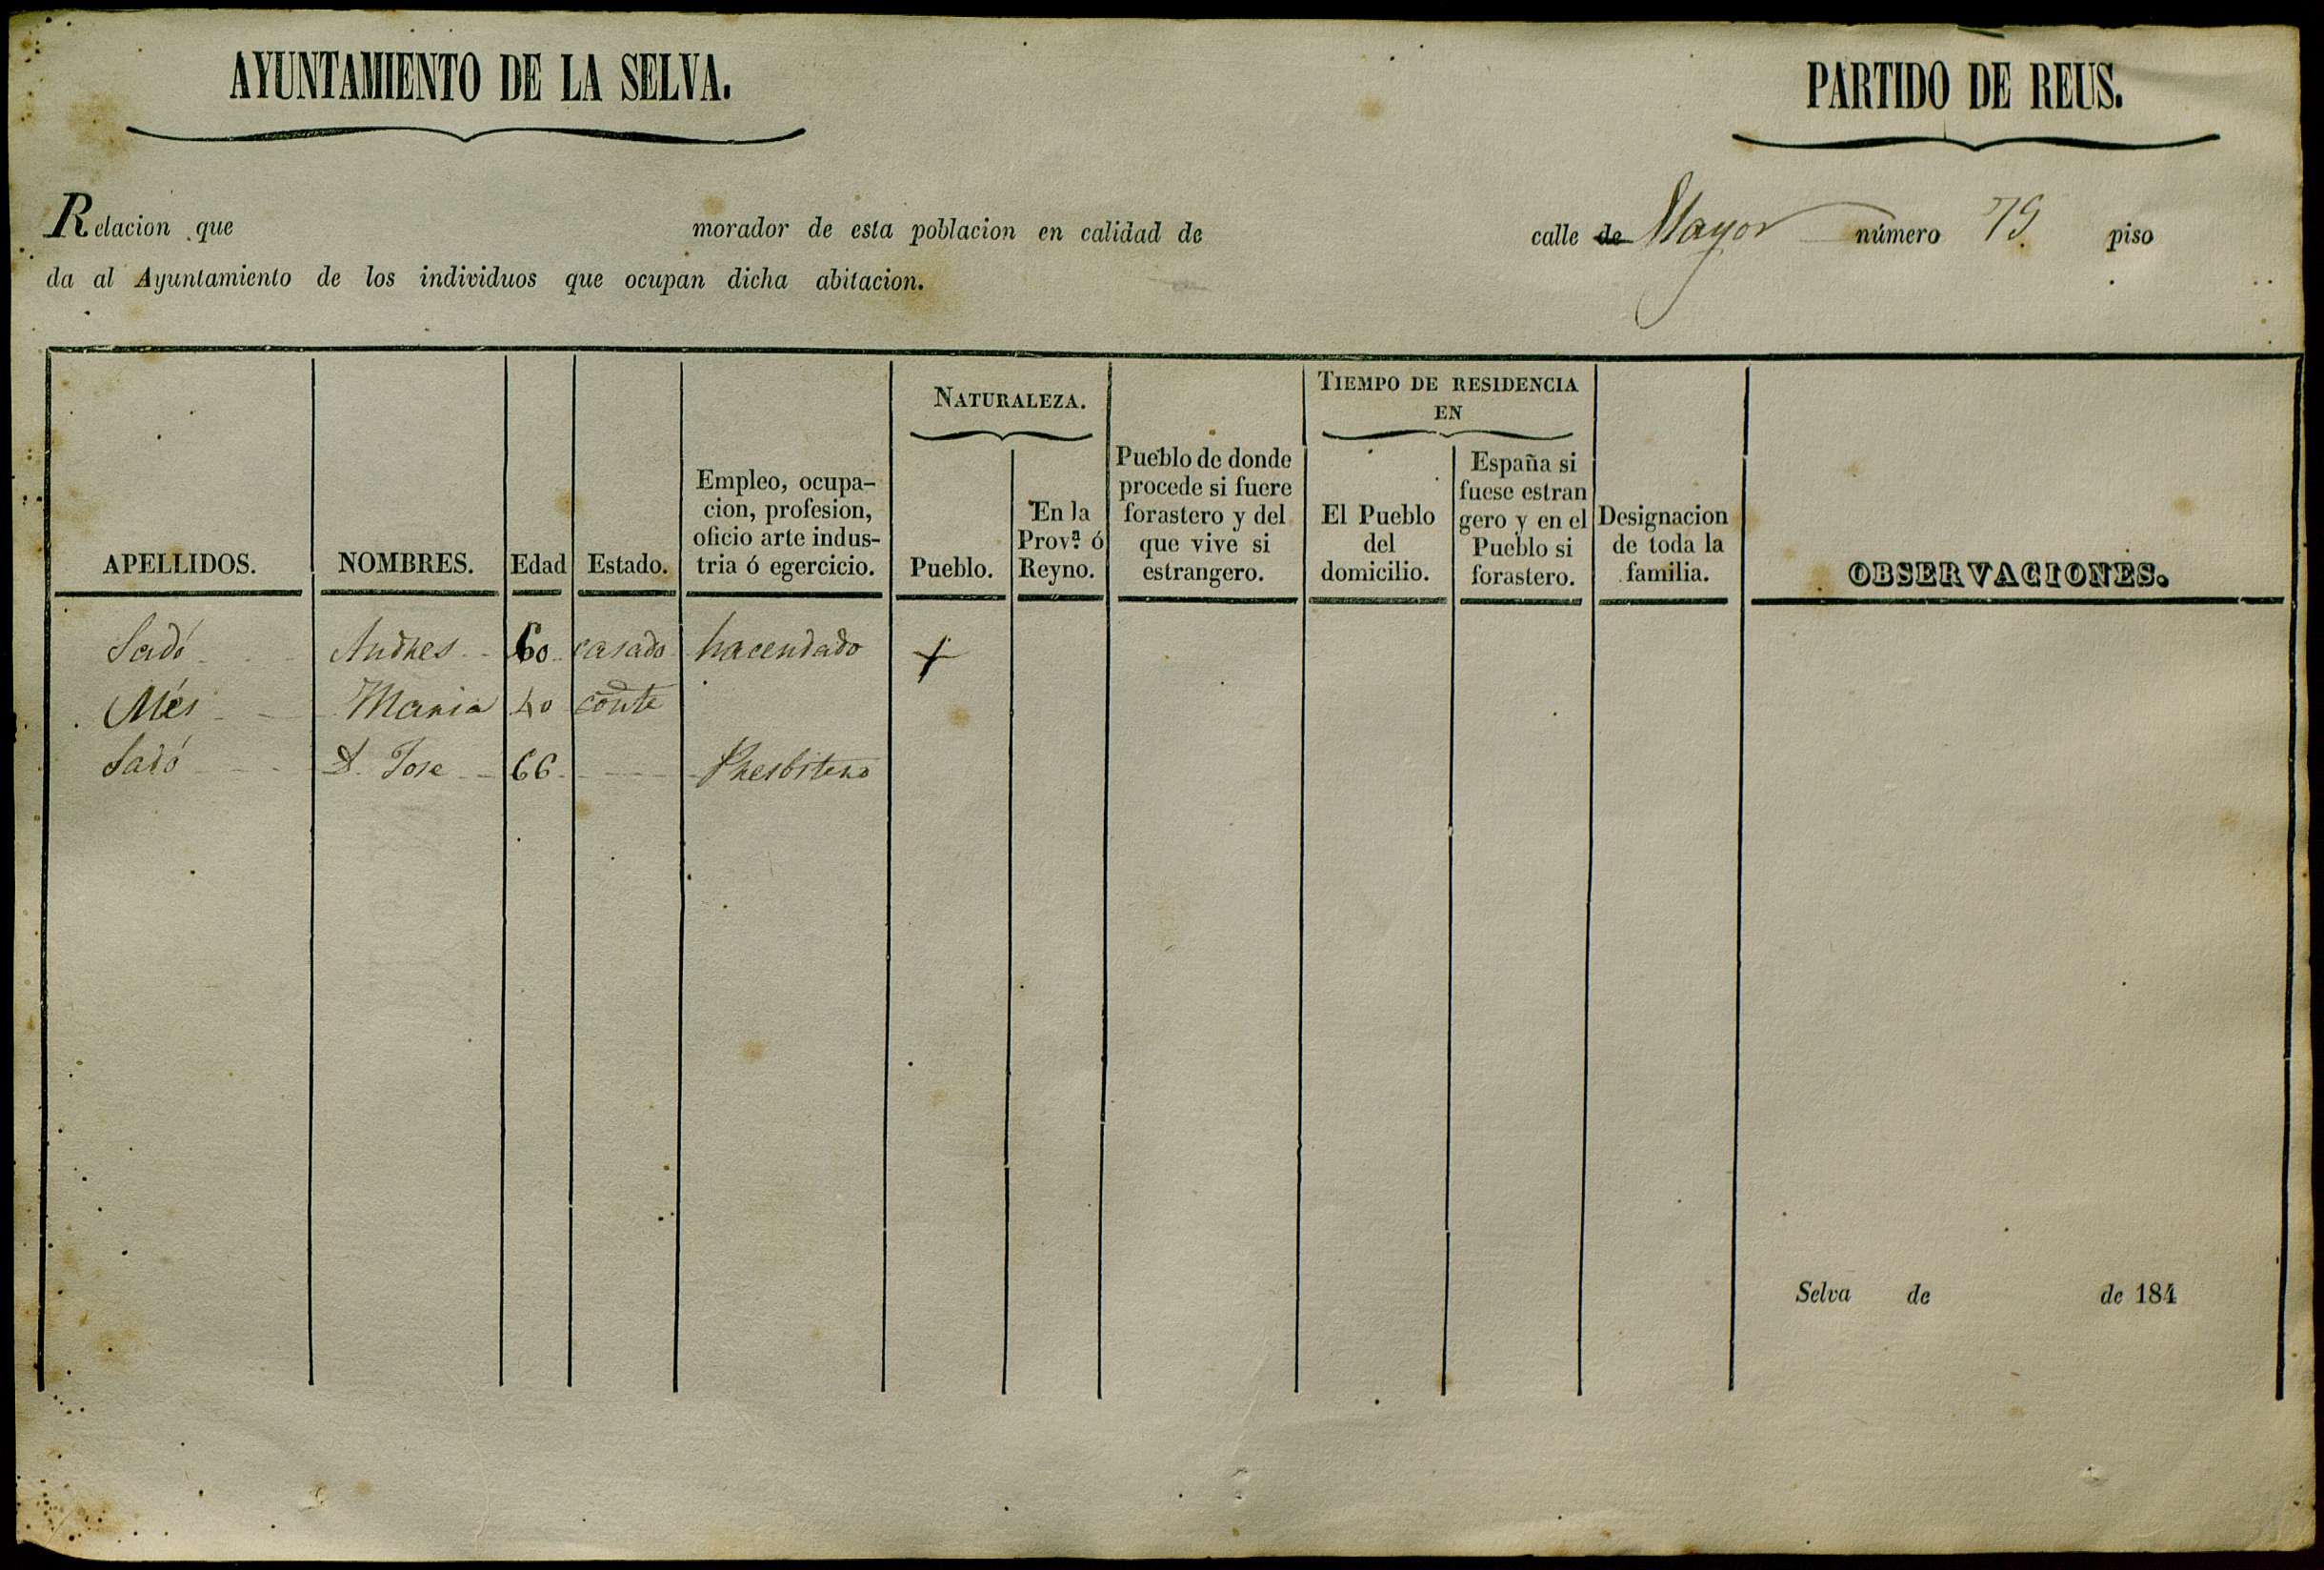 AYUNTAMIENTO DE LA SELVA.
PARTIDO DE REUS.
Relacion que morador de esta poblacion en calidad de calle de Mayor número 79 piso
da al Ayuntamiento de los individuos que ocupan dicha abitacion.
APELLIDOS.
NOMBRES.
Edad
Estado.
Empleo, ocupa-
cion, profesion,
oficio arte indus-
tria ó egercicio.
NATURALEZA.
Pueblo.
En la
Provª. ó
Reyno.
Pueblo de donde
procede si fuere
forastero y del
que vive si
estrangero.
TIEMPO DE RESIDENCIA
EN
El Pueblo
del
domicilio.
España si
fuese estran
gero y en el
Pueblo si
forastero.
Designacion
de toda la
familia.
OBSERVACIONES.
Sadó Andres 60 casado hacendado +
Més Maria 40
Sadó D. Jose 66 Presbitero
Selva de de 184